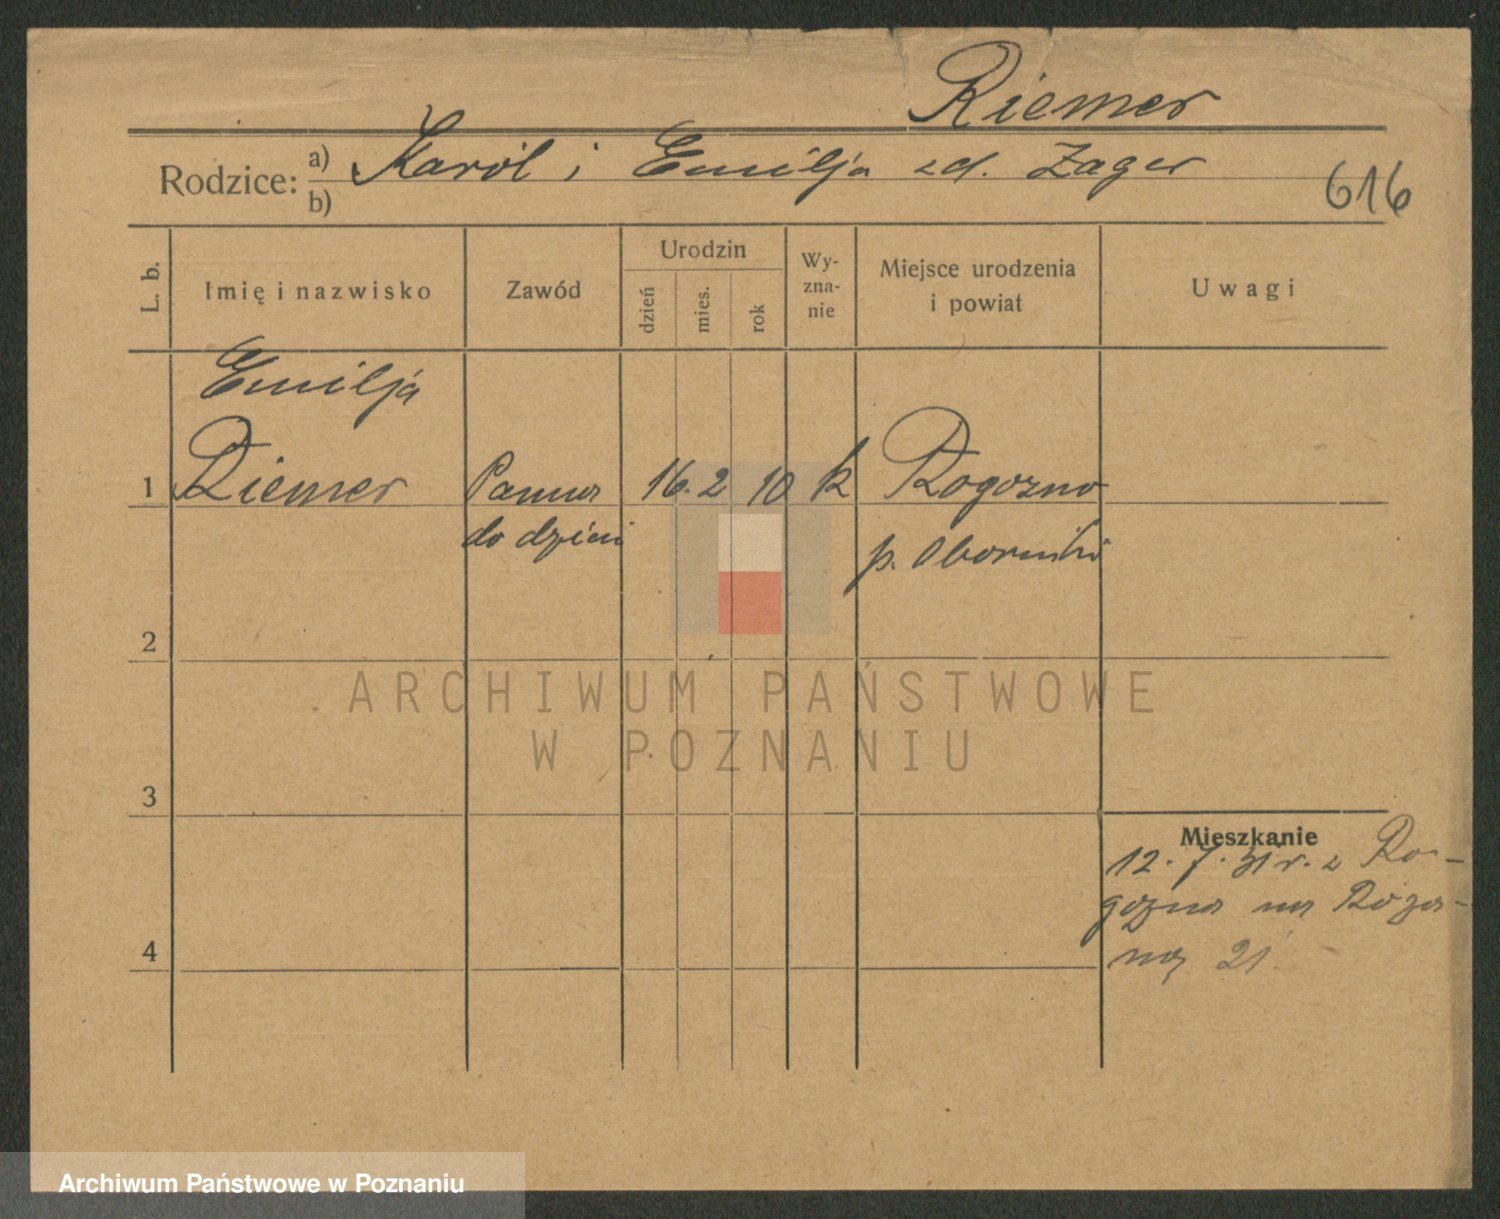 Riemer
Rodzice: a) Karól i Emilja zd. Zager
b)
616
L. b.
Imię i nazwisko
Zawód
Urodzin
dzień
mies.
rok
Wy-
zna-
nie
Miejsce urodzenia
i powiat
Uwagi
Emilja
1 Riemer Panna 16. 2 10 k Rogozno
do dzieci p. Oborniki
2
ARCHIWUM PAŃSTWOWE
W POZNANIU
3
Mieszkanie
12. 7. 31 r. z Ro-
gozna na Róża-
ną 21.
4
Archiwum Państwowe w Poznaniu